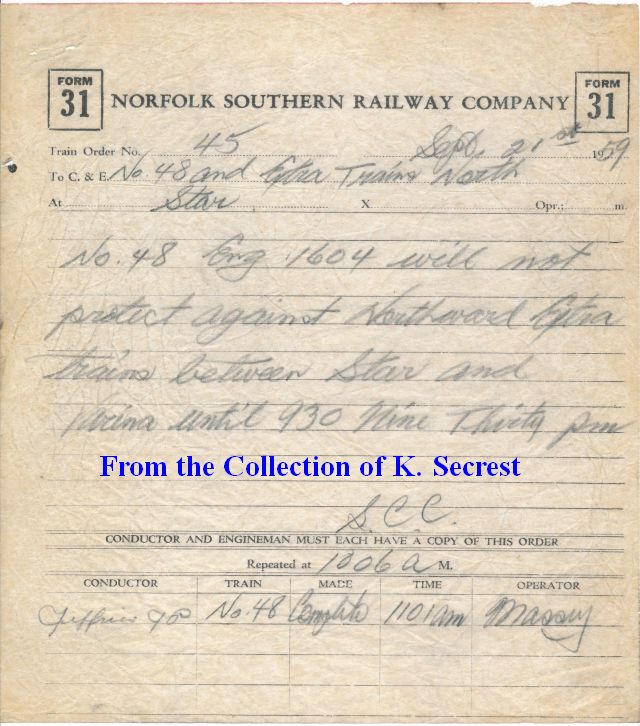 FORM
31
NORFOLK SOUTHERN RAILWAY COMPANY
FORM
31
Train Order No. 45 Sept. 21st 1959
To C. & E. No. 48 and Extra Trains North
At Star X Opr.; m.
No. 48 Eng 1604 will not
protect against Northward Extra
trains between Star and
Varina until 930 Nine Thirty pm
From the Collection of K. Secrest
S.C.C.
CONDUCTOR AND ENGINEMAN MUST EACH HAVE A COPY OF THIS ORDER
Repeated at 1006 a M.
CONDUCTOR TRAIN MADE TIME OPERATOR
Jeffries No. 48 Complete 1101am Massey